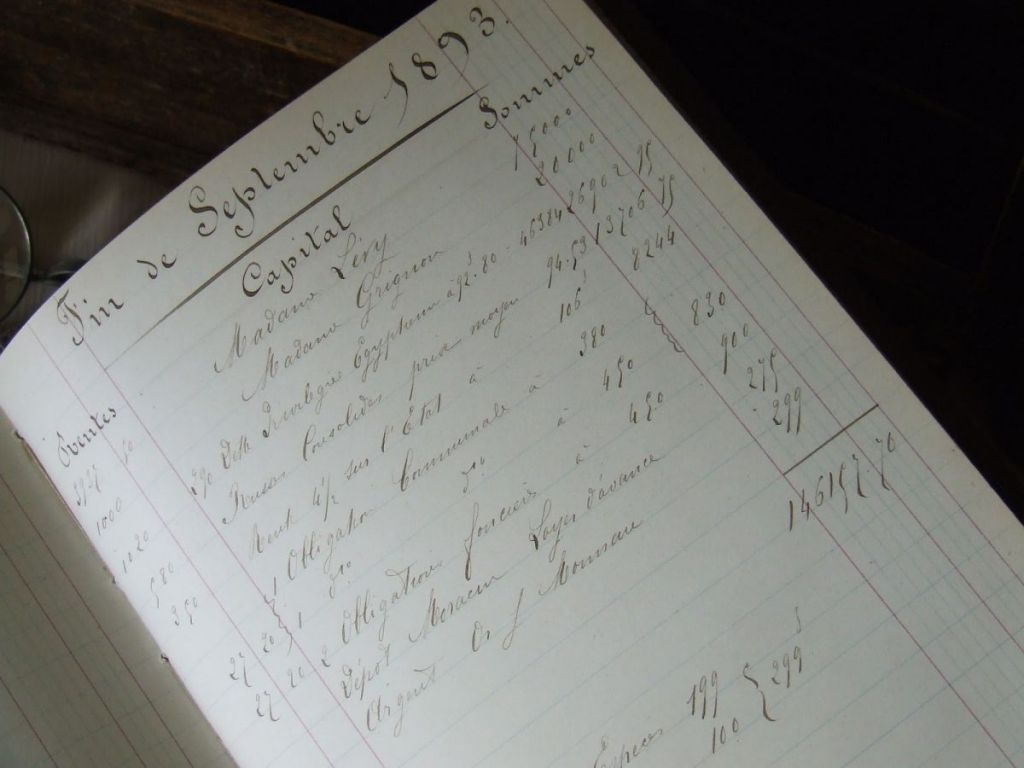 Fin de Septembre 1893.
Rentes Capital Sommes
Madame Lévy 15000
Madame Grignon 20000
3937 50 Dette Privilégiée Egyptienne à 92.80 =
1000 Russes Consolidés prix moyen 94.53
1020 Rente 4½ sur l'Etat à 106 8244
580 1 Obligation Communale à 380
350 1 d° d° à 450 830
27 20 2 Obligations foncières à 450 900
27 20 Dépôt Loyer d'avance 275
Argent Or & Monnaie 299
146157.70
Espèces 199
100 299